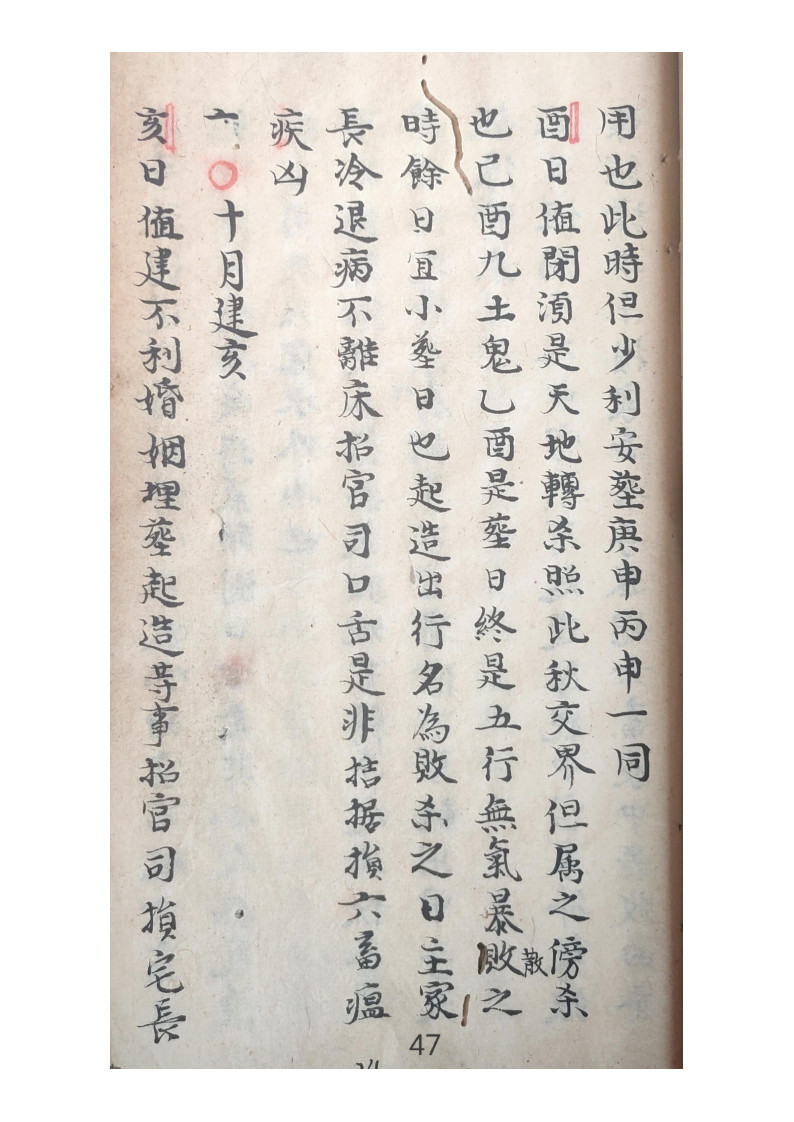 用也此時但少利安塟庚申丙申一同
酉日値閉湏是天地轉杀照此秋交界但属之傍杀
也己酉九土鬼乙酉是塟日終是五行無氣暴敗散之
時餘日宜小塟日也起造出行名為敗杀之日主家
長冷退病不離床招官司口舌是非拮据損六畜瘟
疾凶
六〇十月建亥
亥日値建不利婚姻埋塟起造等事招官司損宅長
47